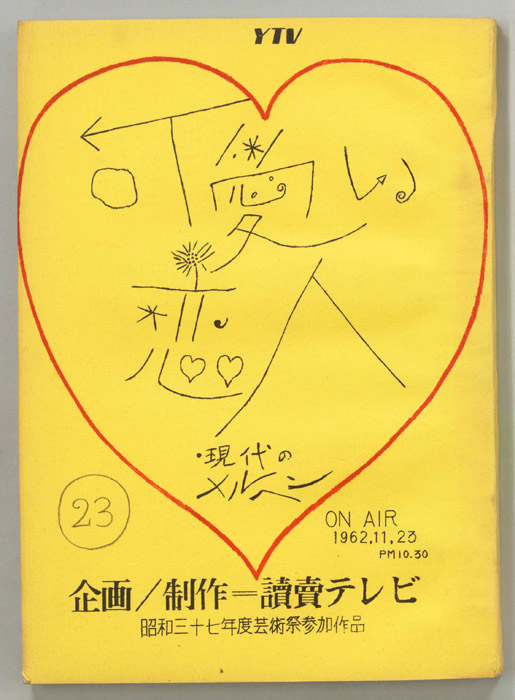 YTV
可愛い
恋人
・現代の
メルヘン
23
ON AIR
1962.11.23
PM10.30
企画/制作=讀賣テレビ
昭和三十七年度芸術祭参加作品